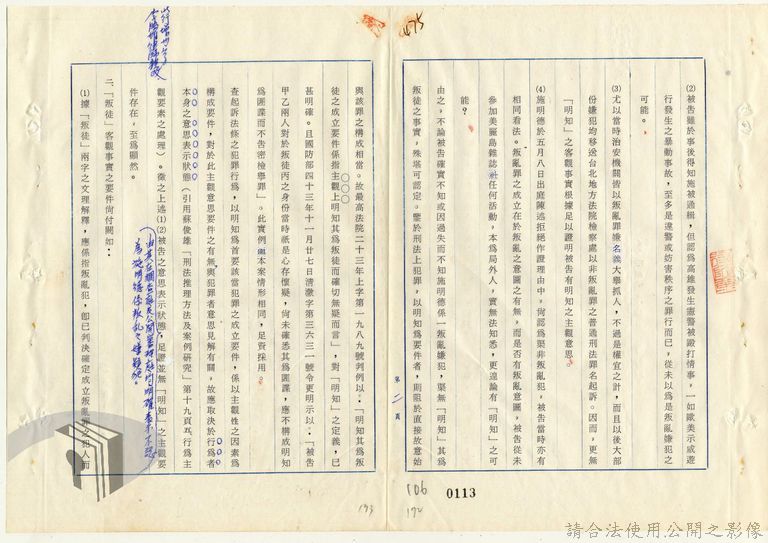 (2)被告雖於事後得知施被通緝，但認為高雄發生憲警被毆打情事，一如歐美示威遊
行發生之暴動事故，至多是違警或妨害秩序之罪行而已，從未以為是叛亂嫌犯之
可能。
(3)尤以當時治安機關皆以叛亂罪嫌名義大舉抓人，不過是權宜之計，而且以後大部
份嫌犯均移送台北地方法院檢察處以非叛亂罪之普通刑法罪名起訴。因而，更無
「明知」之客觀事實根據足以證明被告有明知之主觀意思
(4)施明德於五月八日出庭陳述拒絕作證理由中，尚認為渠非叛亂犯，被告當時亦有
相同看法。叛亂罪之成立在於叛亂之意圖之有無，而是否有叛亂意圖，被告從未
參加美麗島雜誌社任何活動，本為局外人，實無法知悉，更遑論有「明知」之可
能？
由之，不論被告確實不知或因過失而不知施明德係一叛亂嫌犯，渠無「明知」其為
叛徒之事實，殊堪可認定。鑒於刑法上犯罪，以明知為要件者，則阻於直接故意始
第二頁
與該罪之構成相當。故最高法院二十三年上字第一八八九號判例以：「明知其為叛
徒之成立要件係指主觀上明知其為叛徒而確切無疑而言」，對「明知」之定義，已
甚明確。且國防部四十三年十一月廿七日清澈字第三六三一號令更明示以：「被告
甲乙兩人對於叛徒丙之身份當時祇是心存懷疑，尚未確悉其為匪諜，應不構成明知
為匪諜而不告密檢舉罪」。此實例與本案情形相同，足資採用。
查起訴法條之犯罪行為，以明知為首要該當犯罪之成立要件，係以主觀性之因素為
構成要件，對於此主觀意思要件之有無與犯罪者意思見解有關，故應取決於行為者
本身之意思表示狀態（引用蘇俊雄「刑法推理方法及案例研究」第十九頁行為主
觀要素之處理）。徵之上述(1)(2)被告之意思表示狀態，足證並無「明知」之主觀要
件存在，至為顯然。
二、「叛徒」客觀事實之要件尚付闕如：
(1)據「叛徒」兩字之文理解釋，應係指叛亂犯，即已判決確定成立叛亂罪之犯人而
475
106
0113
192
193
請合法使用公開之影像